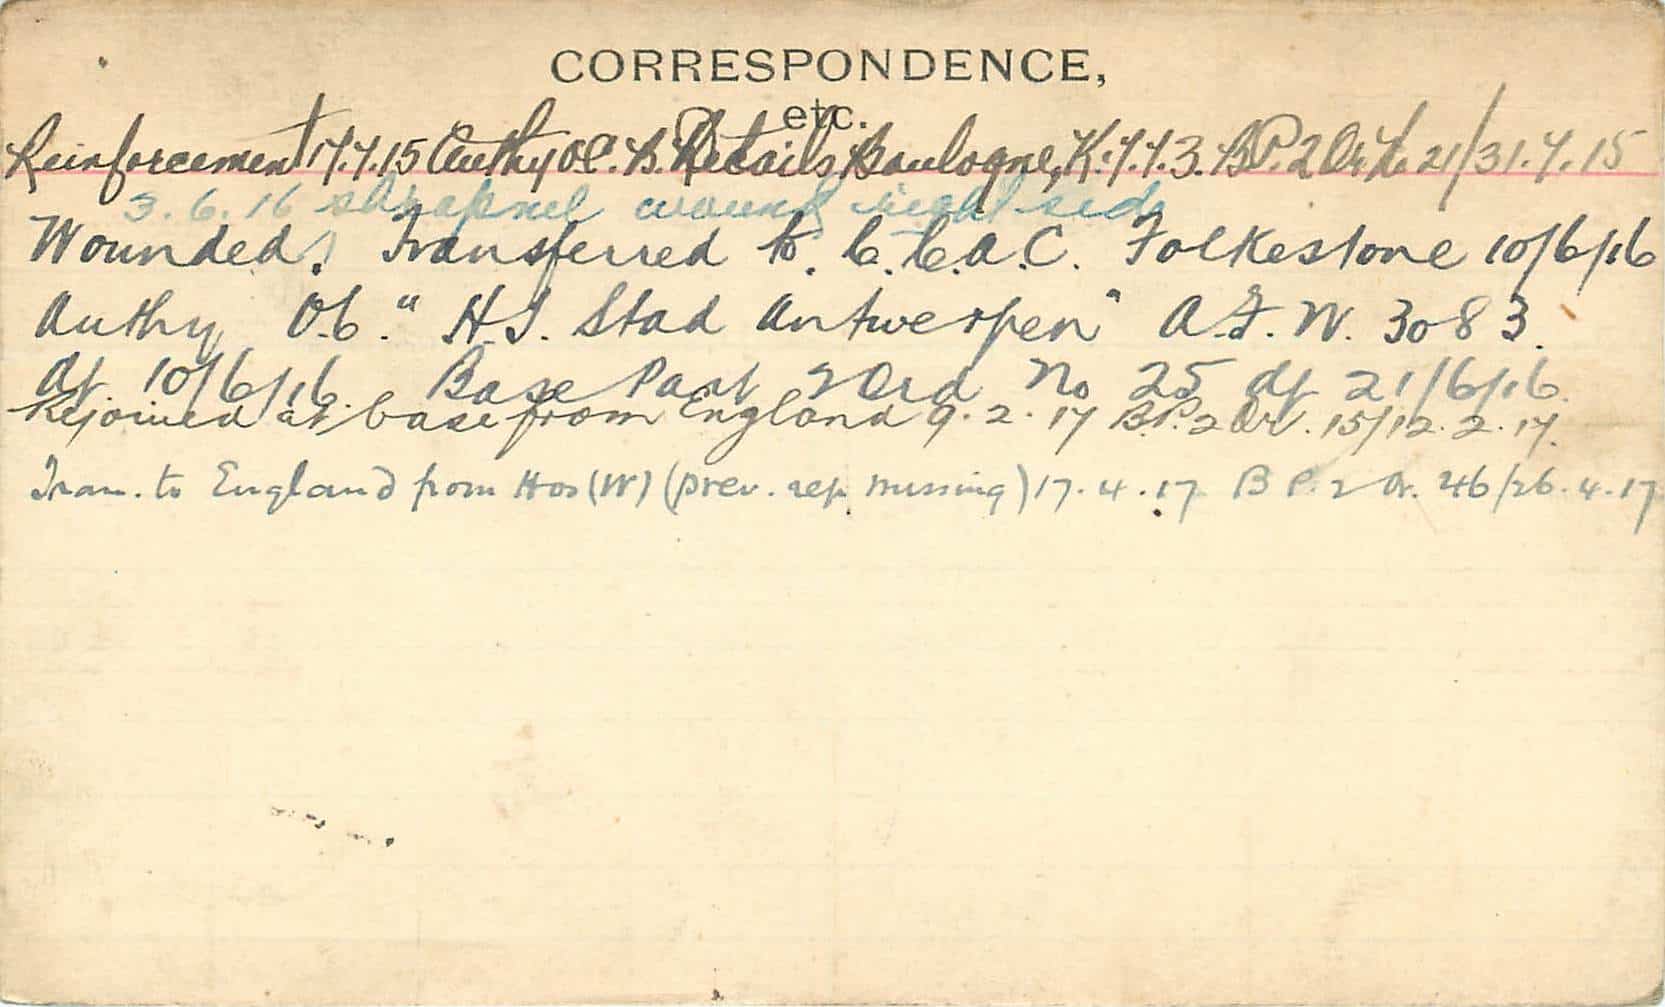 CORRESPONDENCE,
etc.
Reinforcement 17.7.15 Authy O.C. B. Details Boulogne, K.1.1.3. B.P. 2 Or No 21/31.7.15
3.6.16 shrapnel wound right side
Wounded. Transferred to. C.C.A.C. Folkestone 10/6/16
Authy OC. "H.S. Stad Antwerpen" A.F.W. 3083.
df 10/6/16. Base Part 2 Ord No 25 df 21/6/16.
Rejoined at base from England 9.2.17 B.P. 2 Or. 15/12.2.17.
Tran. to England from Hos (W) (prev. rep. missing) 17.4.17 B P. 2 Or. 46/26.4.17